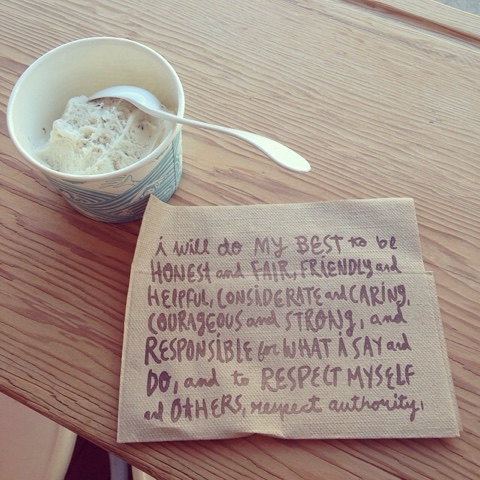 i will do MY BEST to be
HONEST and FAIR, FRIENDLY and
HELPFUL, CONSIDERATE and CARING,
COURAGEOUS and STRONG, and
RESPONSIBLE for WHAT A SAY and
DO, and to RESPECT MYSELF
and OTHERS, respect authority,